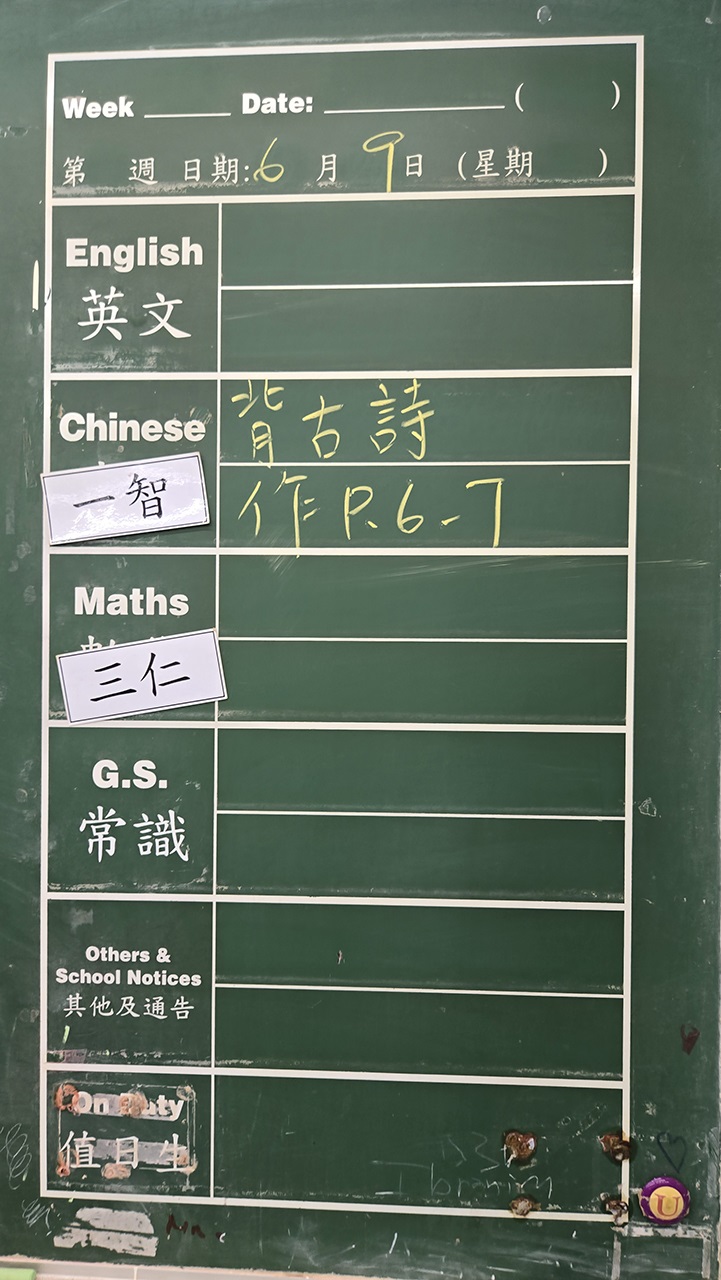 Week _____ Date: __________ ( )
第 週 日期:6 月 9日 (星期 )
English
英文
Chinese
背古詩
一智
作 P.6-7
Maths
三仁
G.S.
常識
Others &
School Notices
其他及通告
On Duty
值日生
U